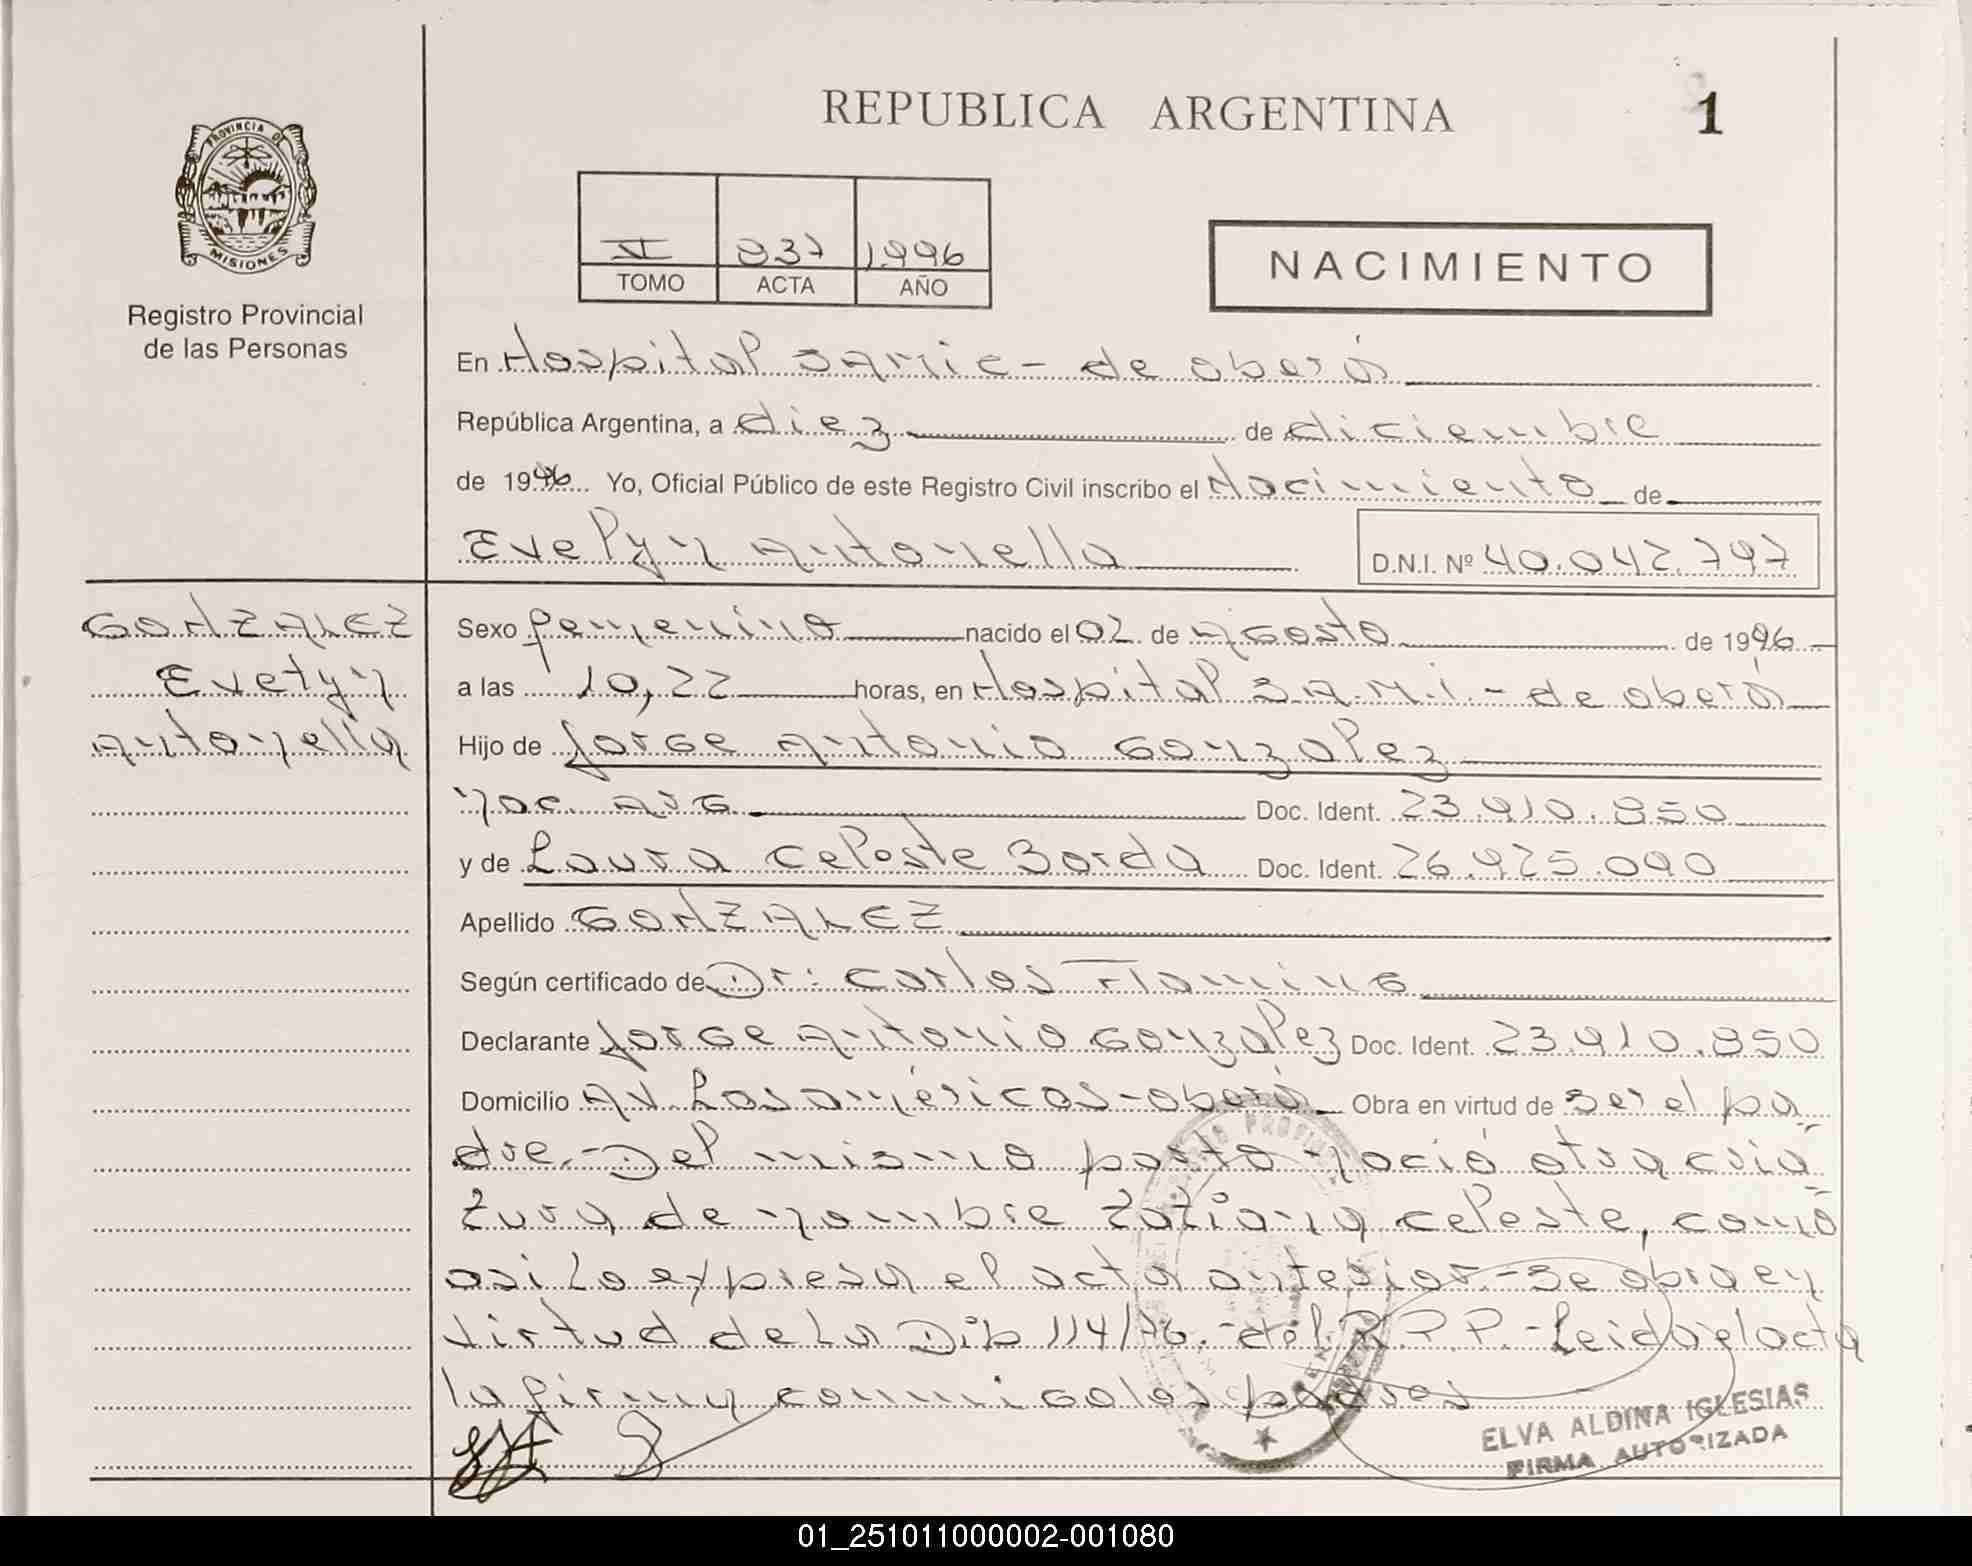 REPUBLICA ARGENTINA
1
PROVINCIA DE
MISIONES
Registro Provincial
de las Personas
VI 937 1996
TOMO ACTA AÑO
NACIMIENTO
En Hospital SAMIC - de oberá
República Argentina, a diez de diciembre
de 1996 Yo, Oficial Público de este Registro Civil inscribo el Nacimiento de
Evelyn Antonella
D.N.I. Nº 40.042.797
GONZALEZ
Evelyn
Antonella
Sexo femenino nacido el 02 de Agosto de 1996
a las 10,22 horas, en Hospital S.A.M.I. - de oberá
Hijo de Jorge Antonio Gonzalez
nac. Arg Doc. Ident. 23.910.850
y de Laura Celeste Borda Doc. Ident. 26.925.090
Apellido GONZALEZ
Según certificado de Dr: Carlos
Declarante Jorge Antonio Gonzalez Doc. Ident. 23.910.850
Domicilio AV. Las américas - oberá Obra en virtud de ser el pa
dre.- Del mismo parto nació otra cria
tura de nombre Tatiana Celeste, como
asi lo expresa el acta anterior.- Se obra en
virtud de la 114/96.- del R.P.P.- Leida el acta
la firman conmigo los padres
ELVA ALDINA IGLESIAS
FIRMA AUTORIZADA
01_251011000002-001080